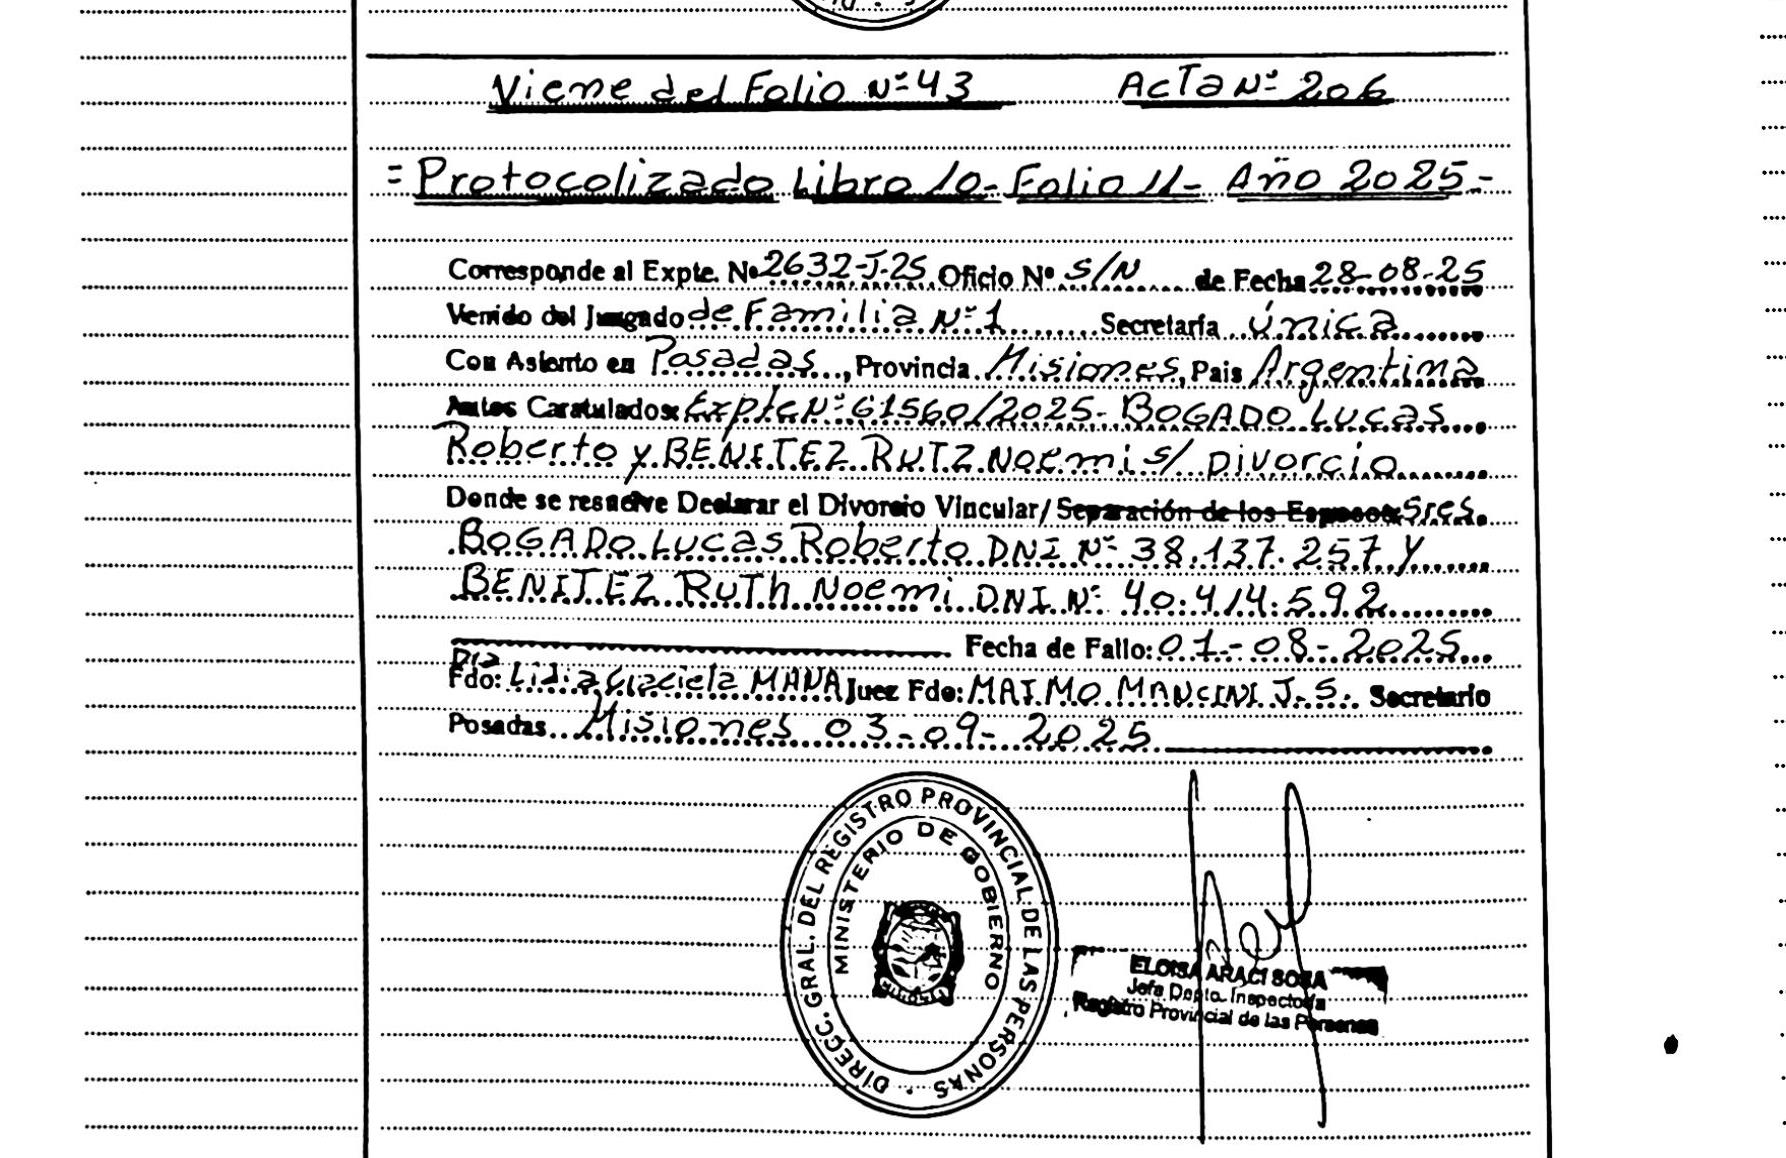 Viene del Folio Nº 43 Acta Nº 206
= Protocolizado Libro 10- Folio 11- Año 2025-
Corresponde al Expte. Nº 2632-J-25 Oficio Nº S/N de Fecha 28-08-25
Venido del Juzgado de Familia Nº 1 Secretaría Única
Con Asiento en Posadas, Provincia Misiones, Pais Argentina
Autos Caratulados: Expte Nº 61560/2025- BOGADO Lucas
Roberto y BENITEZ RUTZ Noemi s/ Divorcio
Donde se resuelve Declarar el Divorcio Vincular/ Separación de los Esposos: Sres.
BOGADO Lucas Roberto DNI Nº 38.137.257 Y
BENITEZ RUTh Noemi DNI Nº 40.414.592
Fecha de Fallo: 01-08-2025
Dra
Fdo: Lidia Graciela MANA Juez Fdo: MAIMO MANCINI J.S. Secretario
Posadas Misiones 03-09-2025
DIRECC. GRAL. DEL REGISTRO PROVINCIAL DE LAS PERSONAS
MINISTERIO DE GOBIERNO
MISIONES
ELOISA ARACI SOSA
Jefa Depto. Inspectoría
Registro Provincial de las Personas